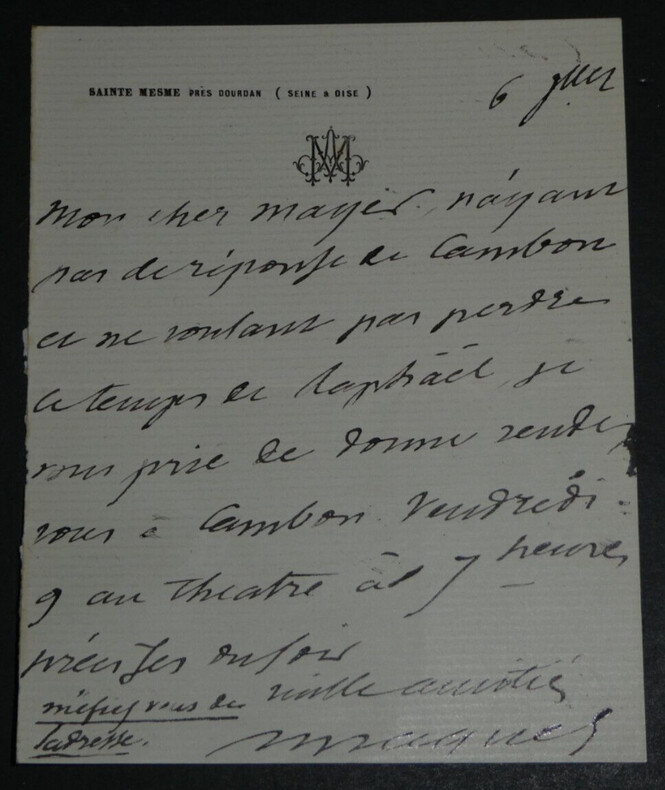 SAINTE MESME PRÈS DOURDAN ( SEINE & OISE )
6
MA
Mon cher mayer, n'ayant
pas de réponse de Cambon
et ne voulant pas perdre
le temps de Raphaël, je
vous prie de donner rendez
vous à Cambon Vendredi
9 au Theatre à 7 heures
précises du soir
vieille amitié
Maquet
méfiez vous de
l'adresse.